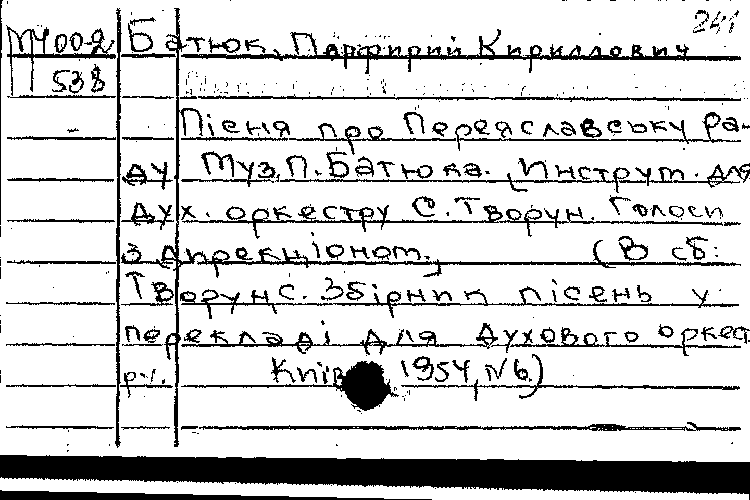 241
М400-2 Батюк, Порфирий Кириллович
538
Пісня про Переяславську Ра-
ду. Муз. П. Батюка. [Инструм. для
дух. оркестру С. Творун. Голоси
з дирекціоном.] (В сб:
Творун, С. Збірник пісень у
перекладі для духового оркест
ру. Київ, 1954, №6)